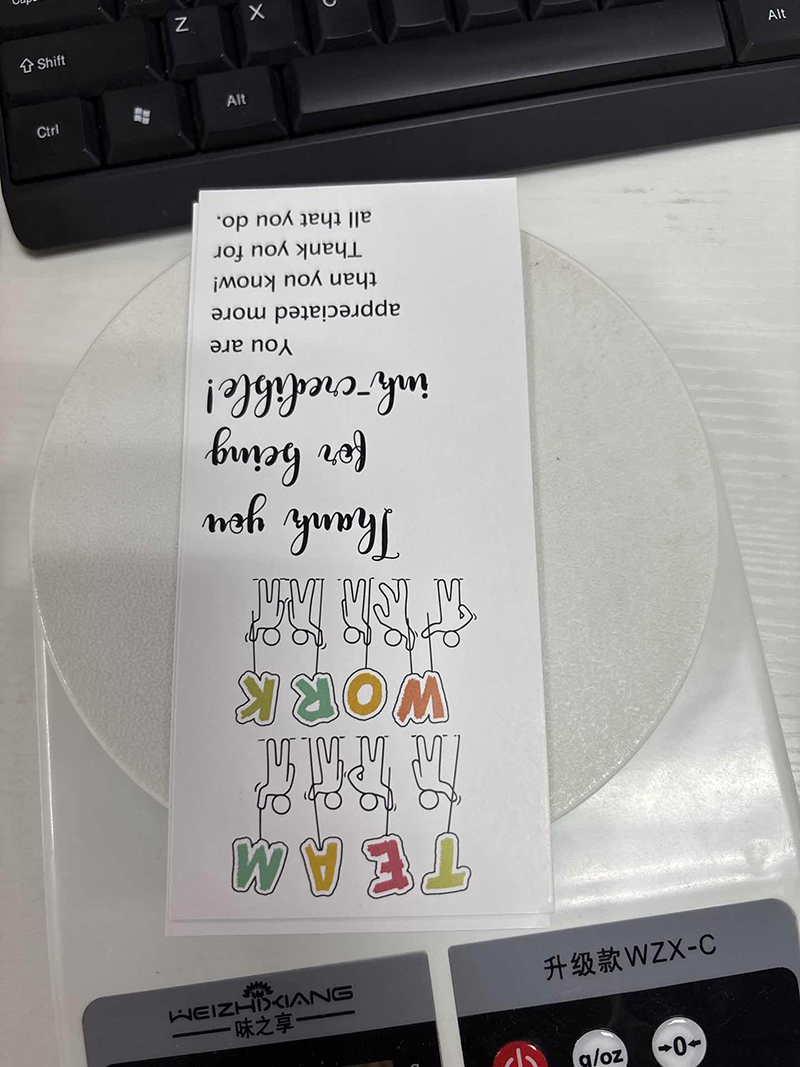 Caps
Z
X
C
Shift
Ctrl
Alt
Alt
TEAM
WORK
Thank you
for being
ink-credible!
You are
appreciated more
than you know!
Thank you for
all that you do.
WEIZHIXIANG
味之享
升级款WZX-C
g/oz
→0←